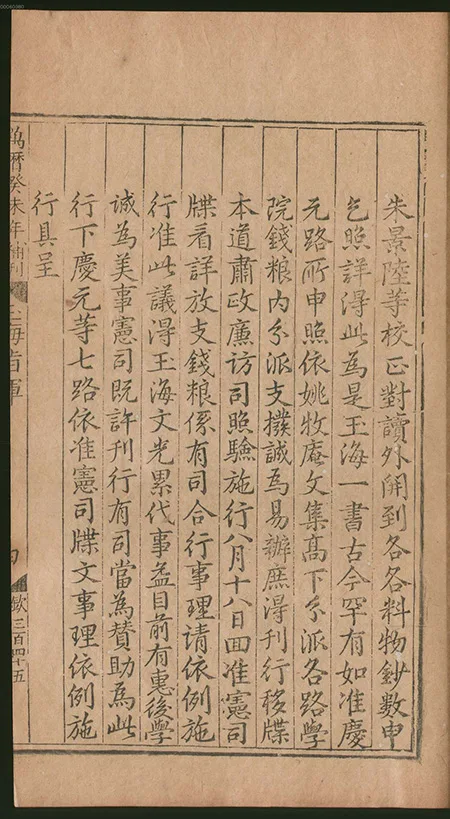 朱景陸等校正對讀外開到各各料物鈔數申
乞照詳得此為是玉海一書古今罕有如准慶
元路所申照依姚牧庵文集高下分派各路學
院錢粮内分派支撥誠為易辦庶得刊行移牒
本道肅政廉访司照驗施行八月十八日回准憲司
牒看詳放支錢粮係有司合行事理请依例施
行准此議得玉海文光累代事益目前有惠後學
诚為美事憲司既許刊行有司當為賛助為此
行下慶元等七路依准憲司牒文事理依例施
行具呈
萬曆癸未年補刊
玉海首
欽三百四十五